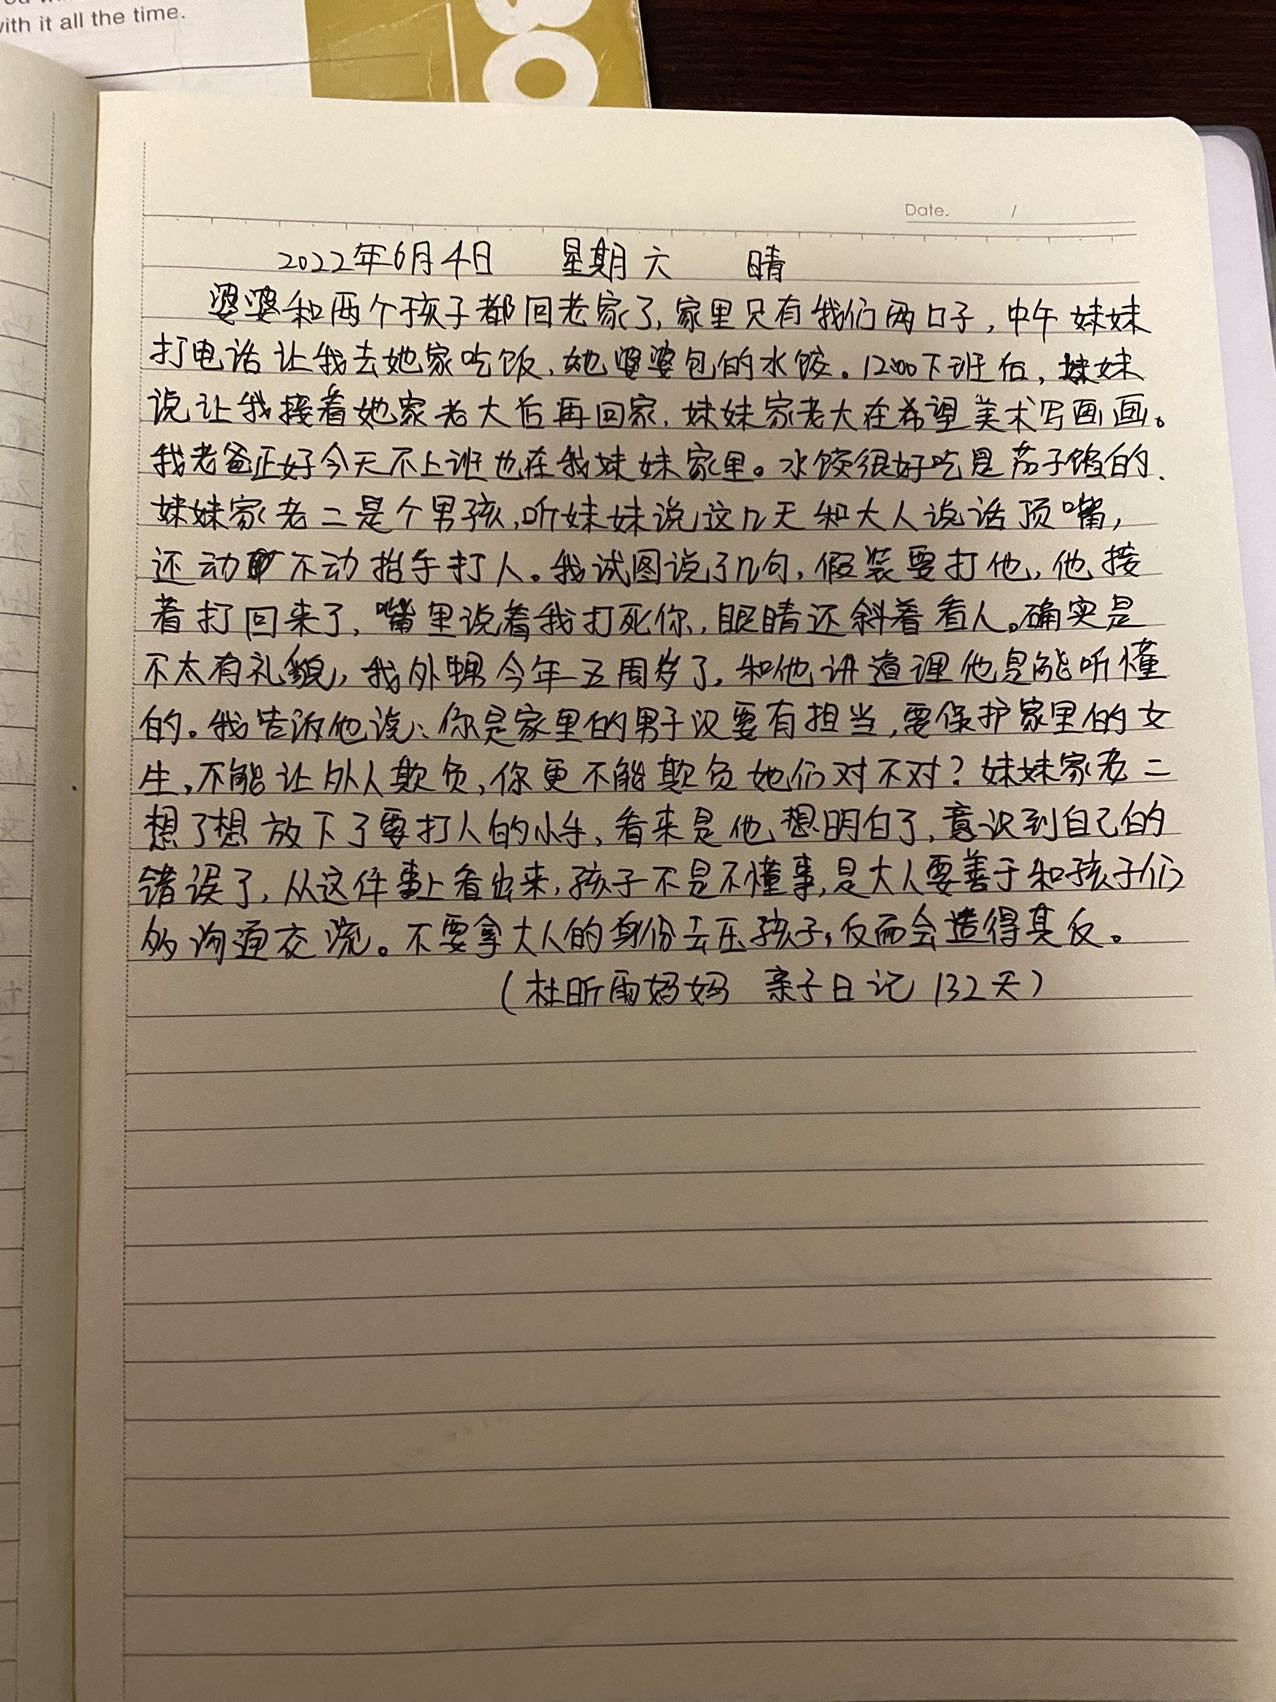 with it all the time.
Date. /
2022年6月4日 星期六 晴
婆婆和两个孩子都回老家了,家里只有我们两口子,中午妹妹
打电话让我去她家吃饭,她婆婆包的水饺。12:00下班后,妹妹
说让我接着她家老大后再回家,妹妹家老大在希望美术写画画。
我老爸正好今天不上班也在我妹妹家里。水饺很好吃是茄子馅的.
妹妹家老二是个男孩,听妹妹说这几天和大人说话顶嘴,
还动不动抬手打人。我试图说了几句,假装要打他,他接
着打回来了,嘴里说着我打死你,眼睛还斜着看人。确实是
不太有礼貌,我外甥今年五周岁了,和他讲道理他是能听懂
的。我告诉他说:你是家里的男子汉要有担当,要保护家里的女
生,不能让外人欺负,你更不能欺负她们对不对?妹妹家老二
想了想放下了要打人的小手,看来是他想明白了,意识到自己的
错误了,从这件事上看出来,孩子不是不懂事,是大人要善于和孩子们
的沟通交流。不要拿大人的身份去压孩子,反而会造得其反。
(杜昕雨妈妈 亲子日记132天)